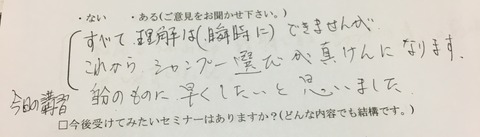 ・ない ・ある(ご意見をお聞かせ下さい。)
すべて理解は(瞬時に)できませんが
これから シャンプー選びが真けんになります.
今日の講習
自分のものに早くしたいと思いました
□今後受けてみたいセミナーはありますか?(どんな内容でも結構です。)